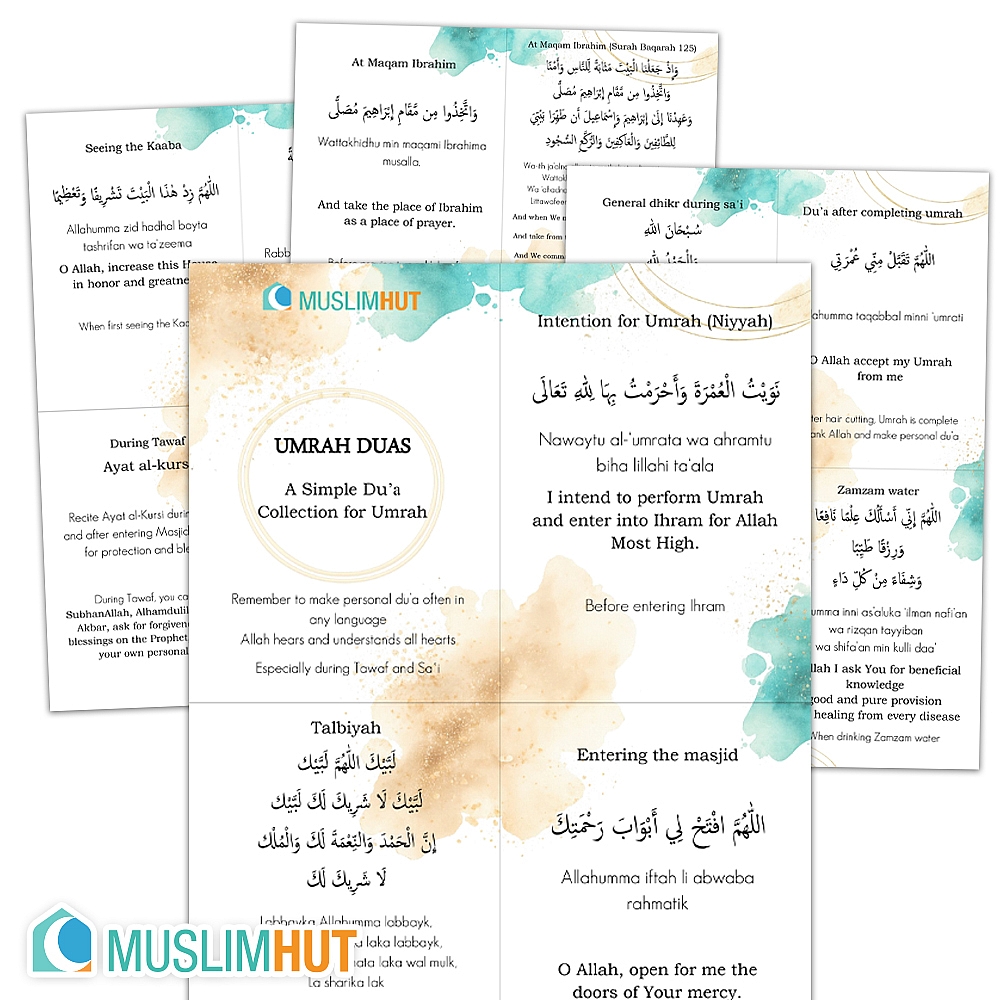 At Maqam Ibrahim
وَاتَّخِذُوا مِن مَّقَامِ إِبْرَاهِيمَ مُصَلًّى
Wattakhidhu min maqami Ibrahima
musalla.
And take the place of Ibrahim
as a place of prayer.
At Maqam Ibrahim (Surah Baqarah 125)
وَإِذْ جَعَلْنَا الْبَيْتَ مَثَابَةً لِّلنَّاسِ وَأَمْنًا
وَاتَّخِذُوا مِن مَّقَامِ إِبْرَاهِيمَ مُصَلًّى
وَعَهِدْنَا إِلَىٰ إِبْرَاهِيمَ وَإِسْمَاعِيلَ أَن طَهِّرَا بَيْتِيَ
لِلطَّائِفِينَ وَالْعَاكِفِينَ وَالرُّكَّعِ السُّجُودِ
And when We
And take from
And We
Seeing the Kaaba
اللَّهُمَّ زِدْ هَٰذَا الْبَيْتَ تَشْرِيفًا وَتَعْظِيمًا
Allahumma zid hadhal bayta
tashrifan wa ta'zeema
O Allah, increase this House
in honor and
When first seeing the
During Tawaf
Ayat
Recite Ayat al-Kursi
and after entering
for protection and
During Tawaf, you
SubhanAllah,
Akbar, ask for
blessings on the Prophet
your own personal
General dhikr during sa'i
سُبْحَانَ اللهِ
Du'a after completing umrah
اللَّهُمَّ تَقَبَّلْ مِنِّي عُمْرَتِي
taqabbal minni 'umrati
O Allah accept my Umrah
from me
hair cutting, Umrah is complete
Allah and make personal du'a
Zamzam water
اللَّهُمَّ إِنِّي أَسْأَلُكَ عِلْمًا نَافِعًا
وَرِزْقًا طَيِّبًا
وَشِفَاءً مِنْ كُلِّ دَاءٍ
inni as'aluka 'ilman nafi'an
wa rizqan tayyiban
wa shifa'an min kulli daa'
I ask You for beneficial
knowledge
good and pure provision
healing from every disease
When drinking Zamzam water
MUSLIMHUT
UMRAH DUAS
A Simple Du'a
Collection for Umrah
Remember to make personal du'a often in
any language
Allah hears and understands all hearts
Especially during Tawaf and Sa'i
Intention for Umrah (Niyyah)
نَوَيْتُ الْعُمْرَةَ وَأَحْرَمْتُ بِهَا لِلَّهِ تَعَالَى
Nawaytu al-'umrata wa ahramtu
biha lillahi ta'ala
I intend to perform Umrah
and enter into Ihram for Allah
Most High.
Before entering Ihram
Talbiyah
لَبَّيْكَ اللَّهُمَّ لَبَّيْك
لَبَّيْكَ لَا شَرِيكَ لَكَ لَبَّيْك
إِنَّ الْحَمْدَ وَالنِّعْمَةَ لَكَ وَالْمُلْك
لَا شَرِيكَ لَكَ
Labbayka Allahumma labbayk,
laka labbayk,
laka wal mulk,
La sharika lak
Entering the masjid
اللَّهُمَّ افْتَحْ لِي أَبْوَابَ رَحْمَتِكَ
Allahumma iftah li abwaba
rahmatik
O Allah, open for me the
doors of Your mercy.
MUSLIMHUT